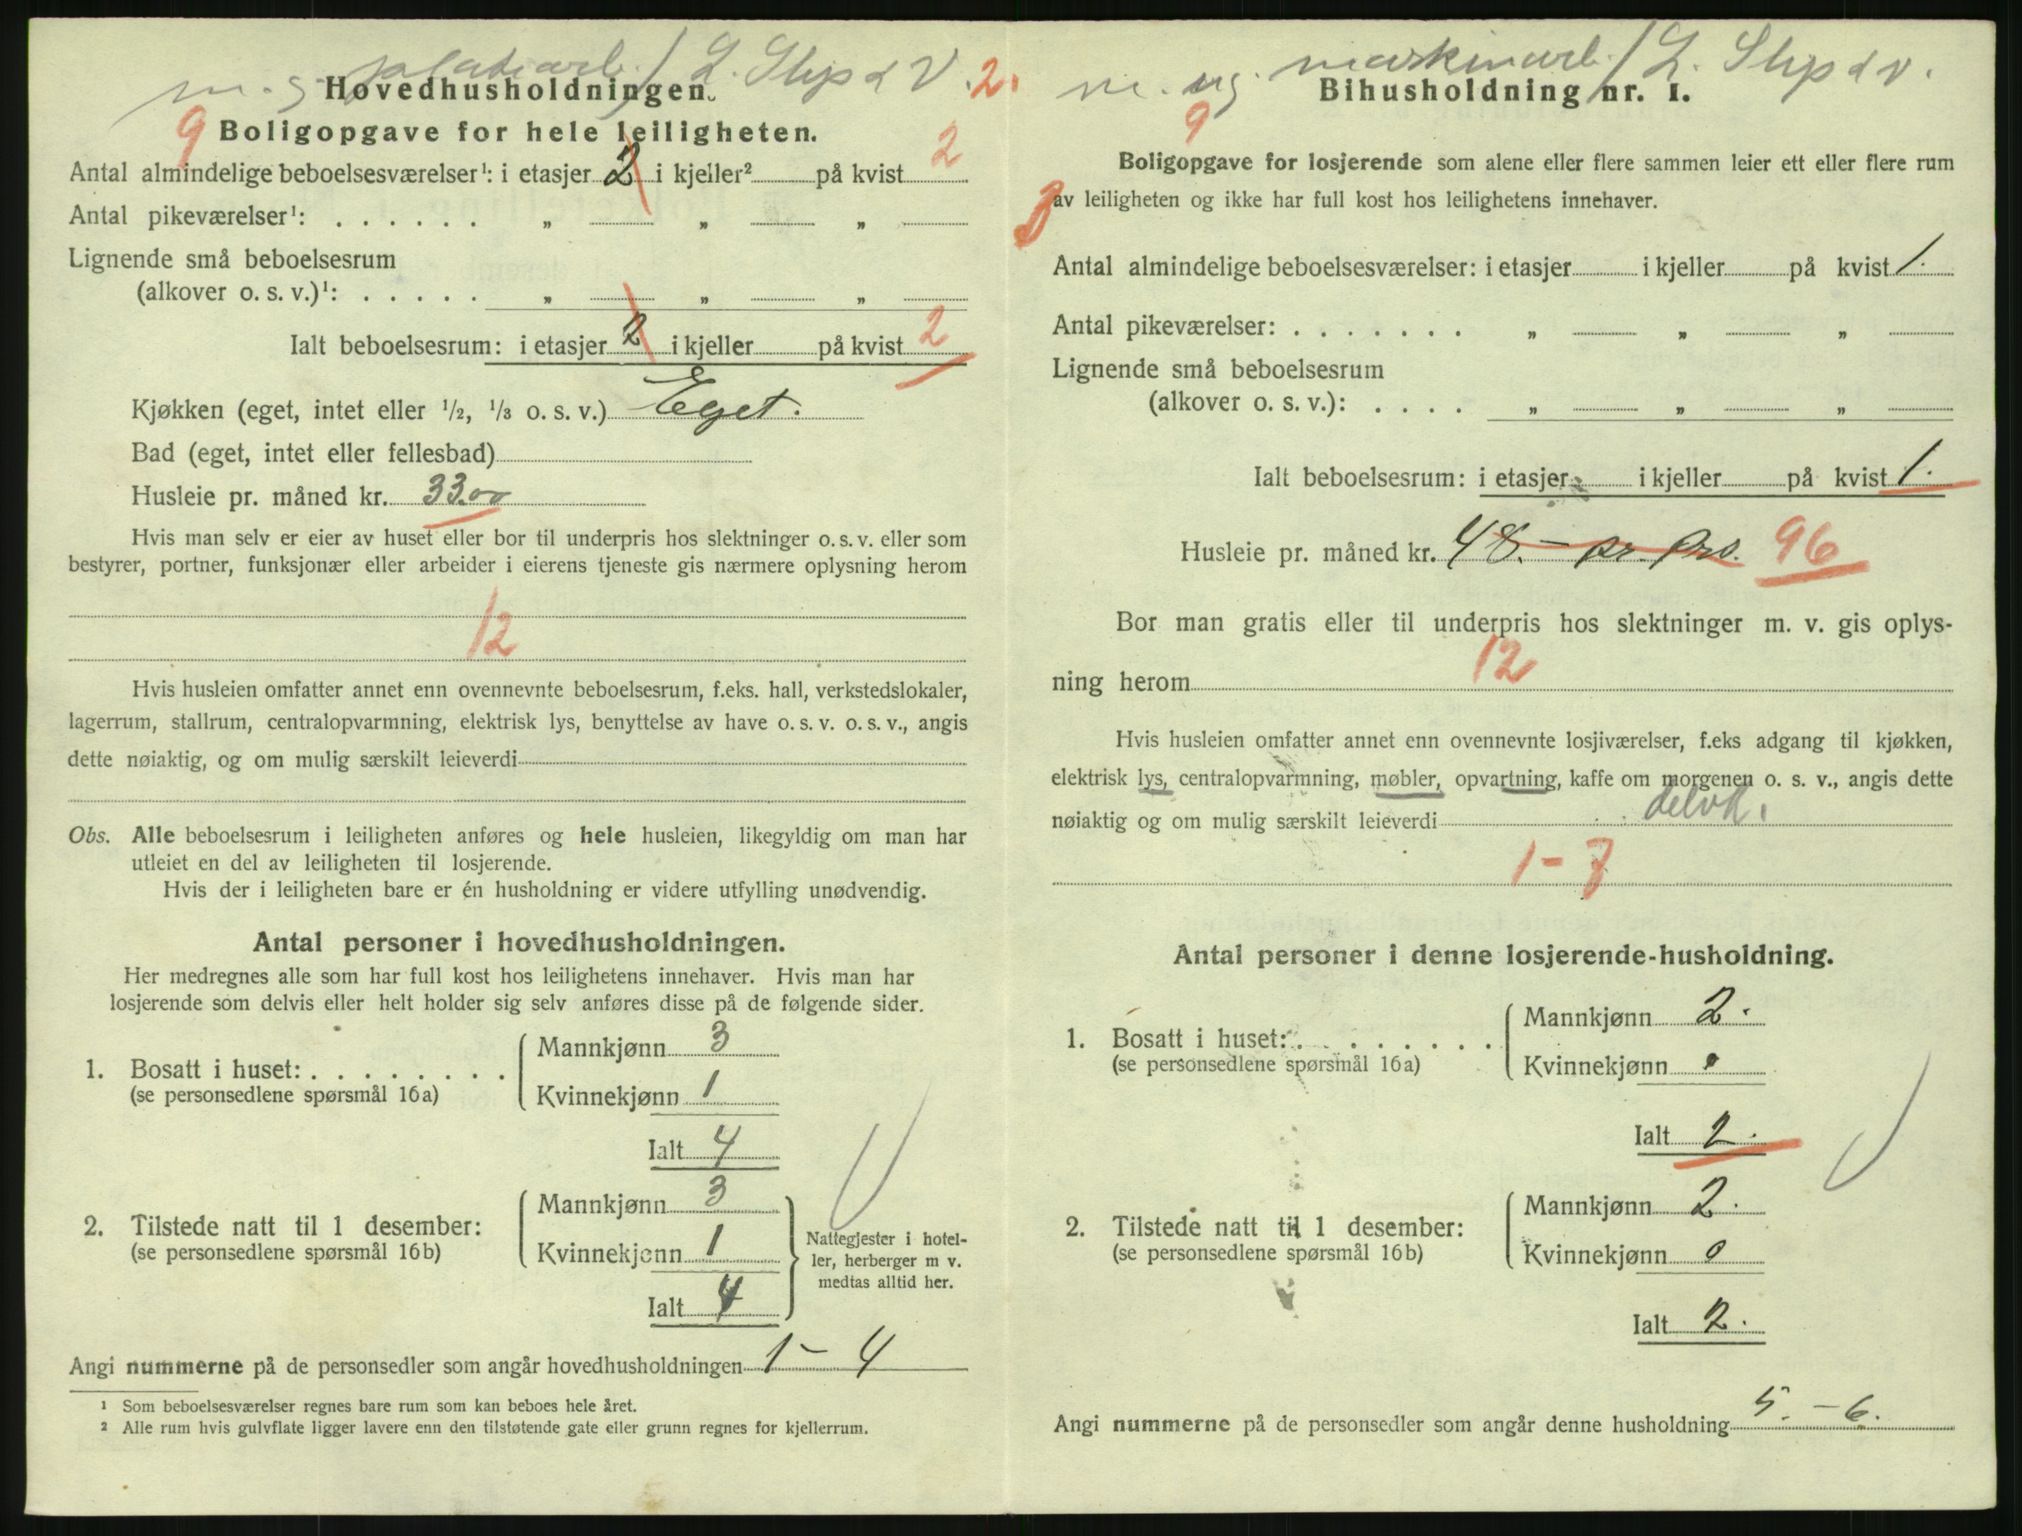 m. g. platearb./ L. Skps d V. 2.
Hovedhusholdningen.
9 Boligopgave for hele leiligheten.
Antal almindelige beboelsesværelser¹: i etasjer 2 i kjeller² på kvist 2
Antal pikeværelser¹: . . . . . . „ „ „
Lignende små beboelsesrum
(alkover o. s. v.)¹: . . . . . „ „ „
Ialt beboelsesrum: i etasjer 2 i kjeller på kvist 2
Kjøkken (eget, intet eller 1/2, 1/3 o. s. v.) Eget.
Bad (eget, intet eller fellesbad)
Husleie pr. måned kr. 33.00
Hvis man selv er eier av huset eller bor til underpris hos slektninger o. s. v. eller som
bestyrer, portner, funksjonær eller arbeider i eierens tjeneste gis nærmere oplysning herom
12
Hvis husleien omfatter annet enn ovennevnte beboelsesrum, f.eks. hall, verkstedslokaler,
lagerrum, stallrum, centralopvarmning, elektrisk lys, benyttelse av have o. s. v. o. s. v., angis
dette nøiaktig, og om mulig særskilt leieverdi
Obs. Alle beboelsesrum i leiligheten anføres og hele husleien, likegyldig om man har
utleiet en del av leiligheten til losjerende.
Hvis der i leiligheten bare er én husholdning er videre utfylling unødvendig.
Antal personer i hovedhusholdningen.
Her medregnes alle som har full kost hos leilighetens innehaver. Hvis man har
losjerende som delvis eller helt holder sig selv anføres disse på de følgende sider.
1. Bosatt i huset: . . . . . . . .
(se personsedlene spørsmål 16a)
Mannkjønn 3
Kvinnekjønn 1
Ialt 4
2. Tilstede natt til 1 desember:
(se personsedlene spørsmål 16b)
Mannkjønn 3
Kvinnekjønn 1
Ialt 4
Nattegjester i hotel-
ler, herberger m v.
medtas alltid her.
Angi nummerne på de personsedler som angår hovedhusholdningen 1 - 4
¹ Som beboelsesværelser regnes bare rum som kan beboes hele året.
² Alle rum hvis gulvflate ligger lavere enn den tilstøtende gate eller grunn regnes for kjellerrum.
m. ug. maskinarb./ L. Skps d v.
Bihusholdning nr. 1.
9
Boligopgave for losjerende som alene eller flere sammen leier ett eller flere rum
av leiligheten og ikke har full kost hos leilighetens innehaver.
Antal almindelige beboelsesværelser: i etasjer i kjeller på kvist 1.
Antal pikeværelser: . . . . . . . „ „ „
Lignende små beboelsesrum
(alkover o. s. v.): . . . . „ „ „
Ialt beboelsesrum: i etasjer i kjeller på kvist 1.
Husleie pr. måned kr. 48.- pr. prs. 96
Bor man gratis eller til underpris hos slektninger m. v. gis oplys-
12
ning herom
Hvis husleien omfatter annet enn ovennevnte losjiværelser, f.eks adgang til kjøkken,
elektrisk lys, centralopvarmning, møbler, opvartning, kaffe om morgenen o. s. v., angis dette
nøiaktig og om mulig særskilt leieverdi
1-7
Antal personer i denne losjerende-husholdning.
1. Bosatt i huset: . . . . . . . .
(se personsedlene spørsmål 16a)
Mannkjønn 2.
Kvinnekjønn 0
Ialt 2.
2. Tilstede natt til 1 desember:
(se personsedlene spørsmål 16b)
Mannkjønn 2.
Kvinnekjønn 0
Ialt 2.
Angi nummerne på de personsedler som angår denne husholdning 5. - 6.